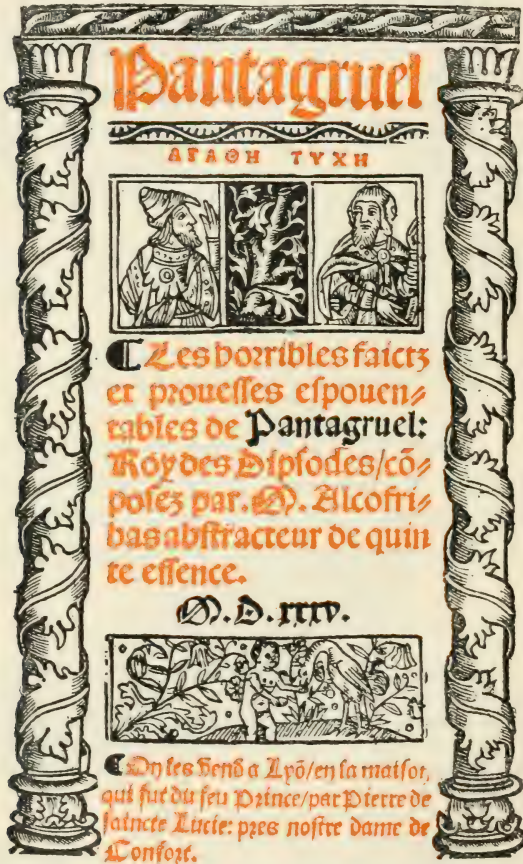 Pantagruel
ΑΓΑΘΗ ΤΥΧΗ
¶Les horribles faictz
et prouesses espouen⸗
tables de Pantagruel:
Roy des Dipsodes/cõ⸗
posez par .M. Alcofri⸗
bas abstracteur de quin
te essence.
M.D.xxxv.
¶On les vend a Lyõ/en la maison,
qui fut du feu Prince/par Pierre de
saincte Lucie: pres nostre dame de
Confort.